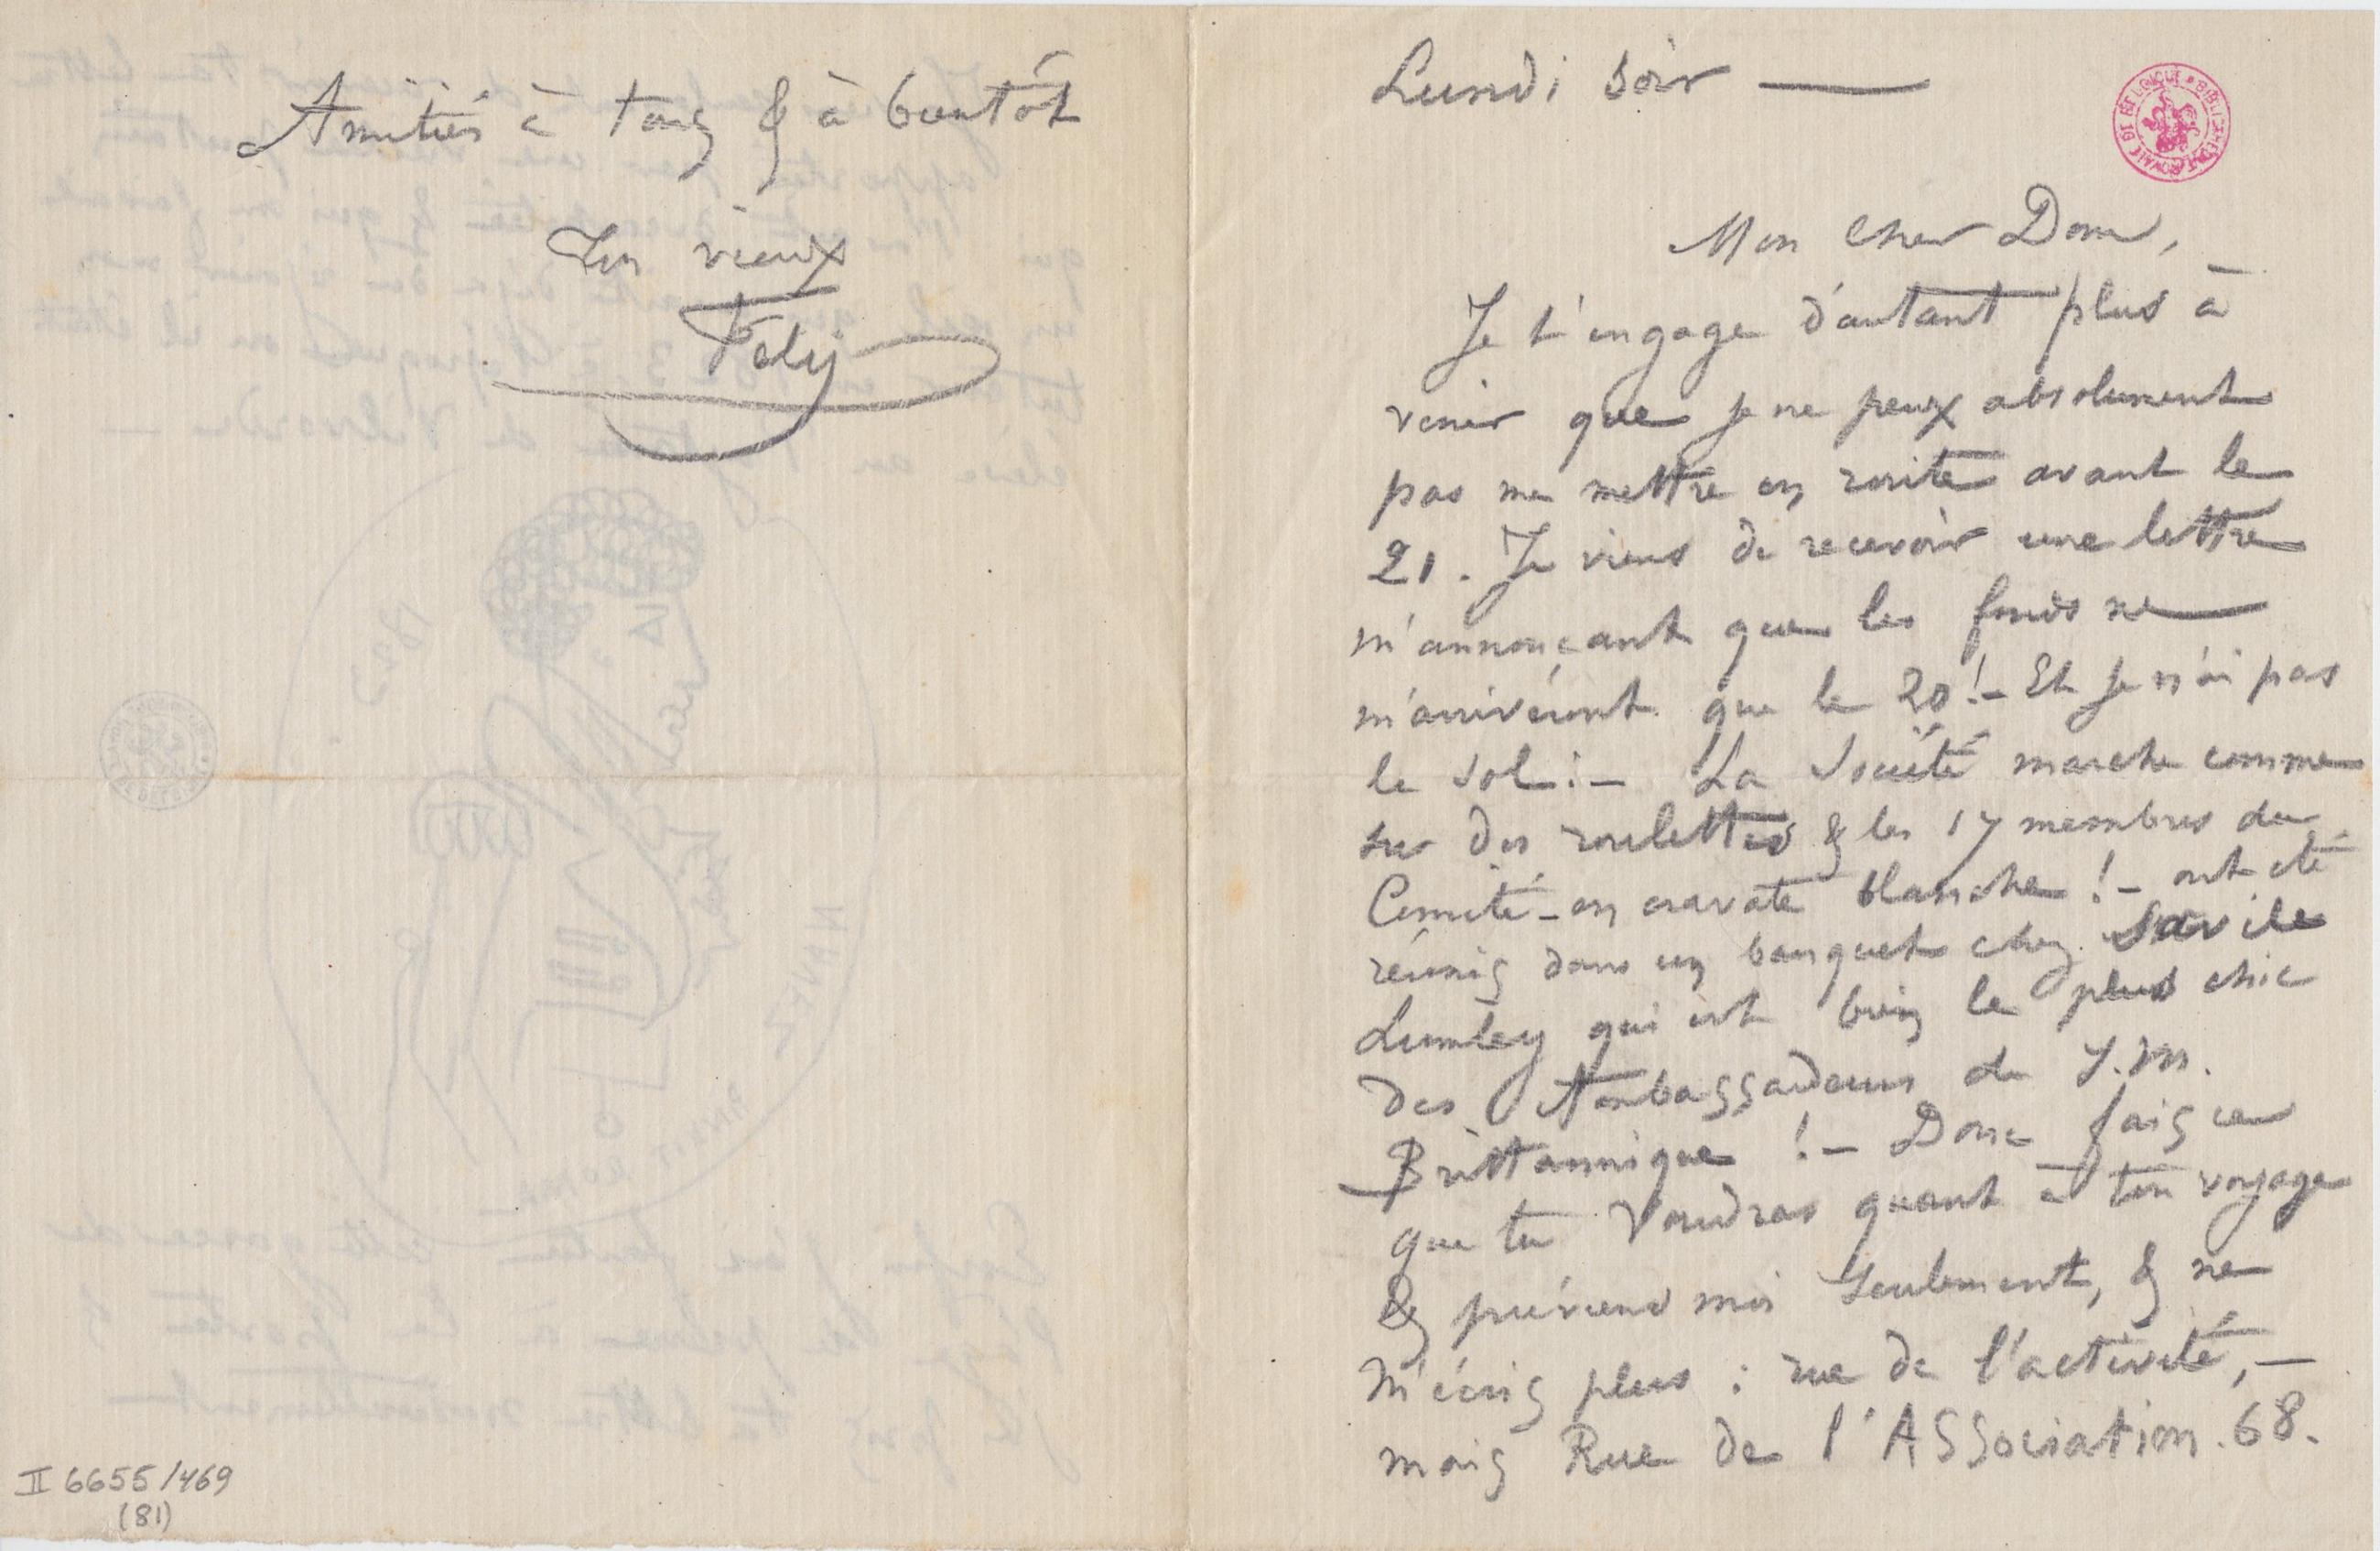 Lundi soir —
Mon cher Dom,
Je t'engage d'autant plus à
venir que je ne peux absolument
pas me mettre en route avant le
21. Je viens de recevoir une lettre
m'annonçant que les fonds ne
m'arriveront que le 20! – Et je n'ai pas
le sol! – La Société marche comme
sur des roulettes & les 17 membres du
Comité – en cravate blanche! – ont été
réunis dans un banquet chez Savile
Lumley qui est bien le plus chic
des Ambassadeurs de S.M.
Brittannique! – Donc fais ce
que tu voudras quant à ton voyage
& préviens moi seulement, & ne
m'écris plus : rue de l'activité, –
mais Rue de l'Association. 68.
Amitiés à tous & à bientôt
Ton vieux
Fély
II 6655/469
(81)
BIBLIOTHÈQUE ROYALE DE BELGIQUE